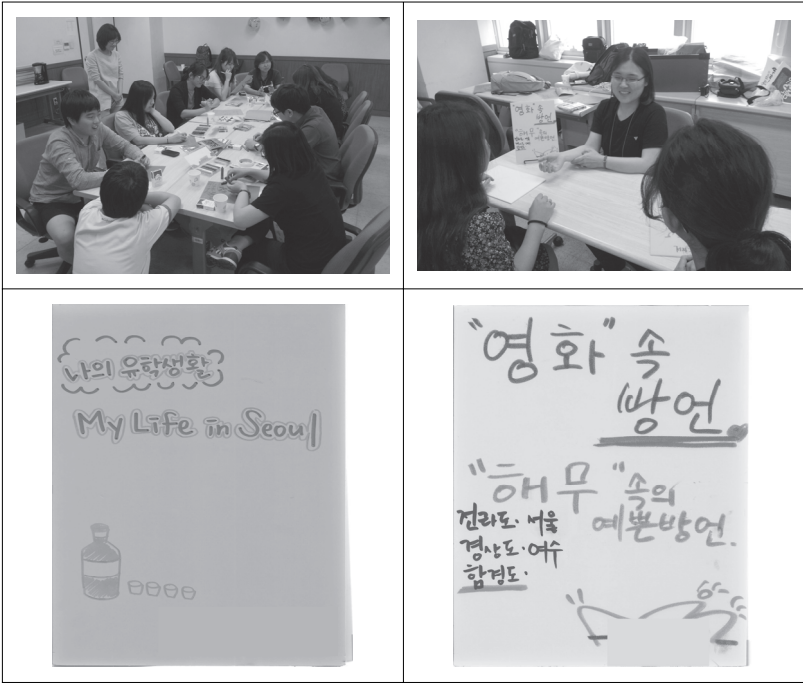 "영화" 속
방언
"해무"속의
예쁜방언
나의 유학생활
My Life in Seoul
"영화" 속
방언
"해무"속의
예쁜방언.
전라도·서울
경상도·여수
함경도·